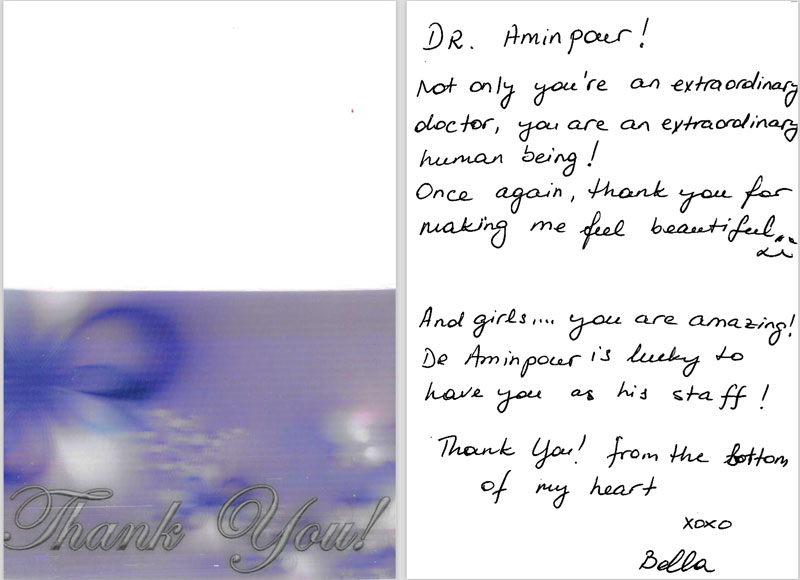 Thank You!
DR. Aminpour!
Not only you're an extraordinary
doctor, you are an extraordinary
human being!
Once again, thank you for
making me feel beautiful...
And girls.... you are amazing!
De Aminpour is lucky to
have you as his staff!
Thank You! from the bottom
of my heart
xoxo
Bella